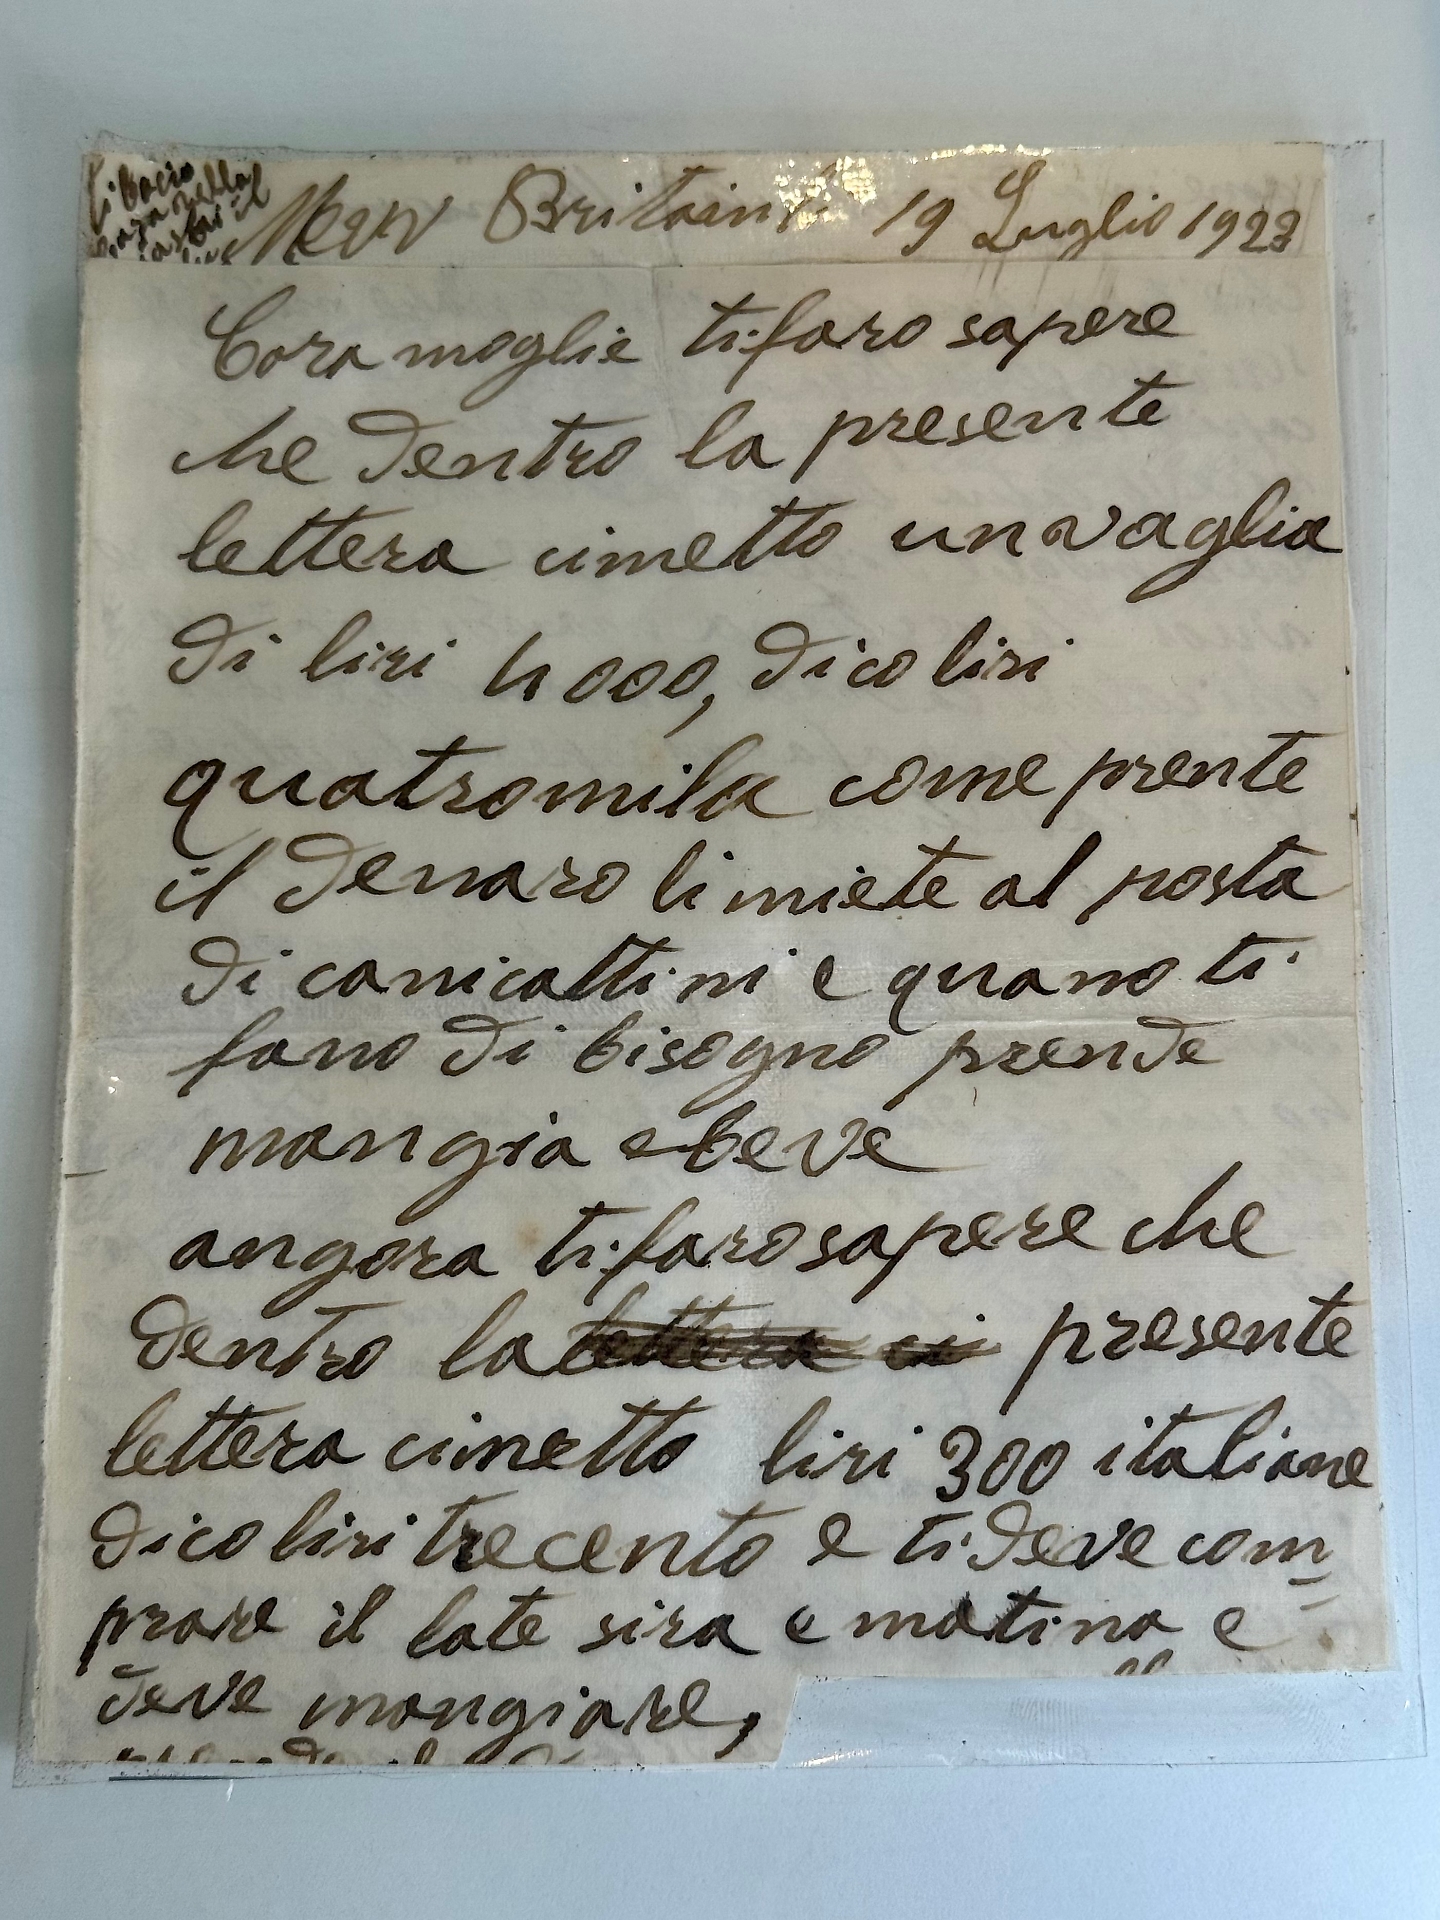 ti bacio
New Britain 19 Luglio 1923
Cara moglie ti faro sapere
che dentro la presente
lettera cimetto un vaglia
di liri 4000, dico liri
quatromila come prente
il denaro li miete al posta
di canicattini e quano ti
fano di bisogno prende
mangia e beve
angora ti faro sapere che
dentro la lettera ci presente
lettera cimetto liri 300 italiane
dico liri trecento e ti deve com
prare il late sira e matina e
deve mangiare,